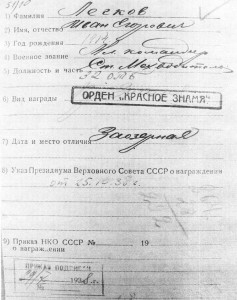 1) Фамилия Лесков
2) Имя, отчество Иван Егорович
3) Год рождения
4) Военное звание Мл. командир
5) Должность и часть Ст. Мех. Водитель
32 ОТБ
6) Вид награды ОРДЕН „КРАСНОЕ ЗНАМЯ"
7) Дата и место отличия Заозерная
8) Указ Президиума Верховного Совета СССР о награждении
от 25.10.38 г.
9) Приказ НКО СССР № 19
о награждении
ПРИКАЗ ОБЪЯВЛЕН